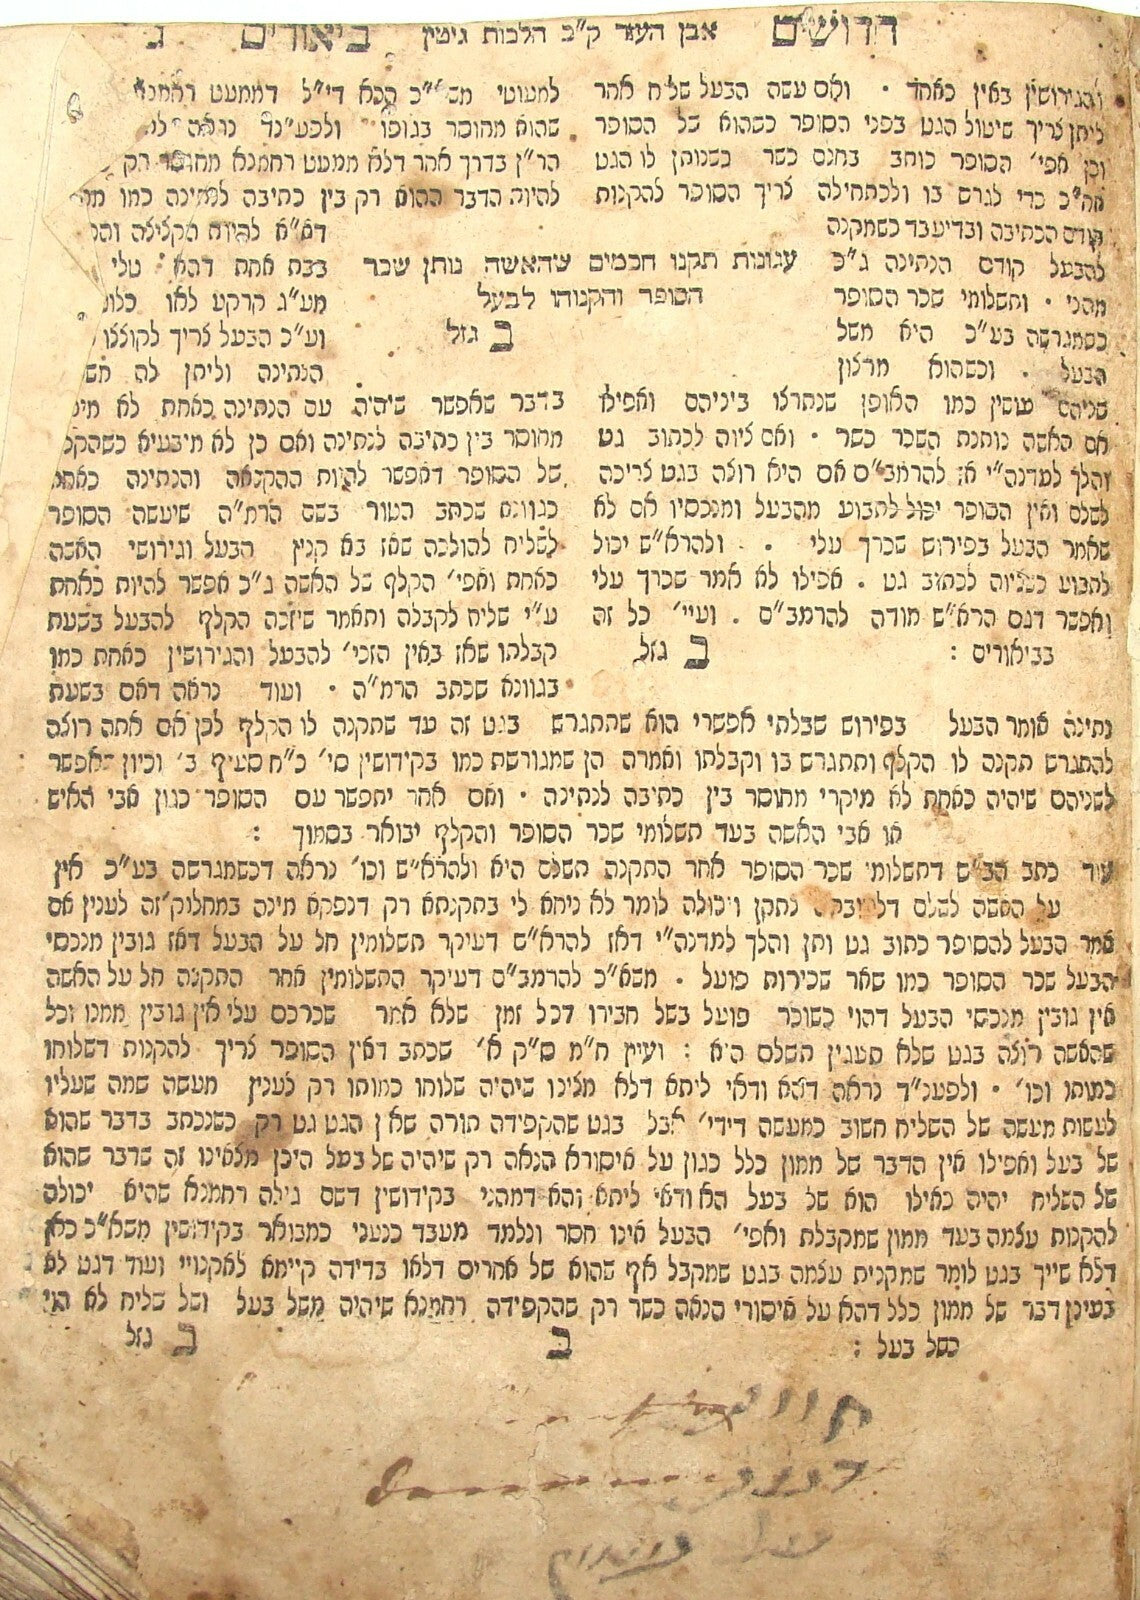 חדושים אבן העזר ק״כ הלכות גיטין ביאורים ג
והגירושין באין כאחד · ואם עשה הבעל שליח אחר
ליתן צריך שיטול הגט בפני הסופר כשהוא של הסופר
וכן אפי׳ הסופר כותב בחנם כשר כשנותן לו הגט
אח״כ כדי לגרש בו ולכתחילה צריך הסופר להקנות
קודם הכתיבה ובדיעבד כשמקנה
להבעל קודם הנתינה ג״כ
מהני · ותשלומי שכר הסופר
כשמגרשה בע״כ היא משל
הבעל · וכשהוא מרצון
שניהם עושין כמו האופן שנתרצו ביניהם ואפילו
אם האשה נותנת השכר כשר · ואם ציוה לכתוב גט
והלך למדה״י אז להרמב״ם אם היא רוצה בגט צריכה
לשלם ואין הסופר יכול לתבוע מהבעל ומנכסיו אם לא
שאמר הבעל בפירוש שכרך עלי · ולהרא״ש יכול
לתבוע כשציוה לכתוב גט · אפילו לא אמר שכרך עלי
ואפשר דגם הרא״ש מודה להרמב״ם · ועיי׳ כל זה
בביאורים :
עגונות תקנו חכמים שהאשה נותן שכר
הסופר והקנוהו לבעל
ב גזל
ב גזל
למעוטי מש״כ הכא די״ל דממעט רחמנא
שהוא מחוסר בגופו ולפע״נד נראה
הר״ן בדרך אחר דלא ממעט רחמנא מחוסר רק
להיות הדבר ההוא רק בין כתיבה לנתינה כמו
דא״א להיות הקצילה
בבת אחת דהא
מע״ג קרקע לאו
וע״כ הבעל צריך לקוצצו
הנתינה וליתן לה
בדבר שאפשר שיהיה עם הנתינה כאחת לא
מחוסר בין כתיבה לנתינה ואם כן לא מיבעיא כשהקלף
של הסופר דאפשר להיות ההקנאה והנתינה כאחת
כגוונא שכתב הטור בשם הרמ״ה שיעשה הסופר
לשליח להולכה שאז בא קנין הבעל וגירושי האשה
כאחת ואפי׳ הקלף של האשה ג״כ אפשר להיות כאחת
ע״י שליח לקבלה ותאמר שיזכה הקלף להבעל בשעת
קבלתו שאז באין הזכי׳ להבעל והגירושין כאחת כמו
בגוונא שכתב הרמ״ה · ועוד נראה דאם בשעת
נתינה אומר הבעל בפירוש שבלתי אפשרי הוא שתתגרש בגט זה עד שתקנה לו הקלף לכן אם אתה רוצה
להתגרש תקנה לו הקלף ותתגרש בו וקבלתו ואמרה הן שמגורשת כמו בקידושין סי׳ כ״ח סעיף ב׳ וכיון דאפשר
לשניהם שיהיה כאחת לא מיקרי מחוסר בין כתיבה לנתינה · ואם אחר יתפשר עם הסופר כגון אבי האיש
או אבי האשה בעד תשלומי שכר הסופר והקלף יבואר בסמוך :
עוד כתב הב״ש דתשלומי שכר הסופר אחר התקנה תשלם היא ולהרא״ש וכו׳ נראה דכשמגרשה בע״כ אין
על האשה לשלם נתקן ויכולה לומר לא ניחא לי בתקנתא רק דנפקא מינה במחלוק׳ זה לענין אם
אמר הבעל להסופר כתוב גט ותן והלך למדנה״י דאז להרא״ש דעיקר תשלומין חל על הבעל דאז גובין מנכסי
הבעל שכר הסופר כמו שאר שכירות פועל · משא״כ להרמב״ם דעיקר התשלומין אחר התקנה חל על האשה
אין גובין מנכסי הבעל דהוי כשוכר פועל בשל חבירו דכל זמן שלא אמר שכרכם עלי אין גובין ממנו וכל
שהאשה רוצה בגט שלא תעגין תשלם היא : ועיין ח״מ ס״ק א׳ שכתב דאין הסופר צריך להקנות דשלוחו
כמותו וכו׳ · ולפענ״ד נראה דהא ודאי ליתא דלא מצינו שיהיה שלוחו כמותו רק לענין מעשה שמה שעליו
לעשות מעשה של השליח חשוב כמעשה דידי׳ אבל בגט שהקפידה תורה שאין הגט גט רק כשנכתב בדבר שהוא
של בעל ואפילו אין הדבר של ממון כלל כגון על איסורא הנאה רק שיהיה של בעל היכן מצאינו זה שדבר שהוא
של השליח יהיה כאילו הוא של בעל הא ודאי ליתא והא דמהני בקידושין דשם גילה רחמנא שהיא יכולה
להקנות עצמה בעד ממון שמקבלת ואפי׳ הבעל אינו חסר ונלמד מעבד כנעני כמבואר בקידושין משא״כ כאן
דלא שייך בגט לומר שמקנית עצמה בגט שמקבל אף שהוא של אחרים דלאו בדידה קיימא לאקנויי ועוד דגט לא
בעינן דבר של ממון כלל דהא על איסורי הנאה כשר רק שהקפידה רחמנא שיהיה משל בעל ושל שליח לא הוי
כשל בעל :
ב
ב גזל